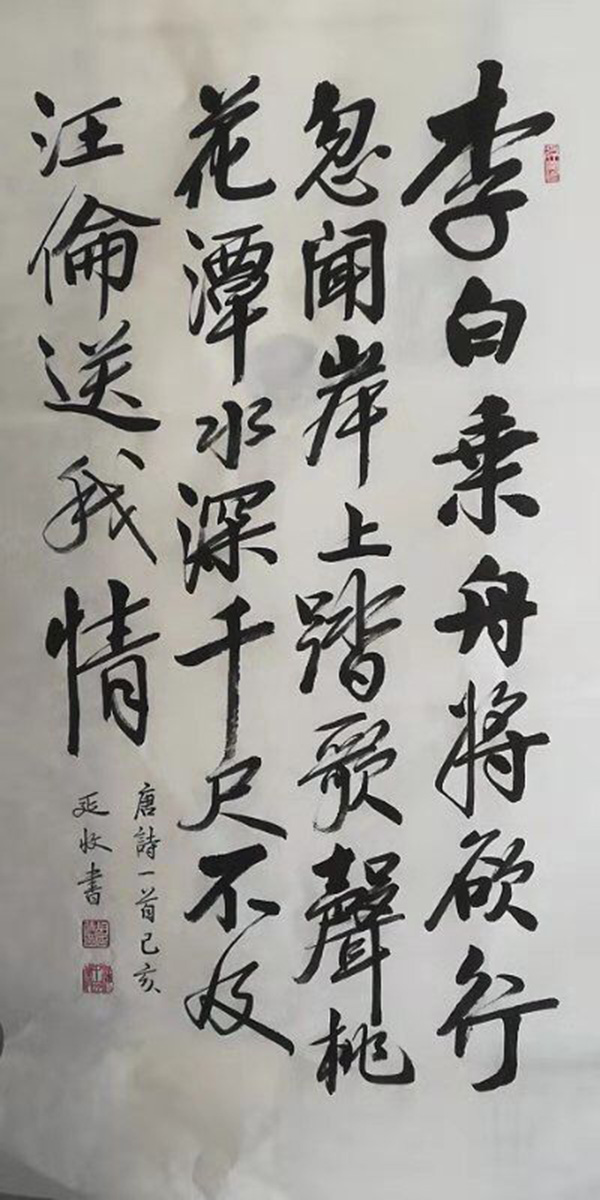 李白乘舟將欲行
忽聞岸上踏歌聲桃
花潭水深千尺不及
汪倫送我情
唐詩一首己亥
延收書